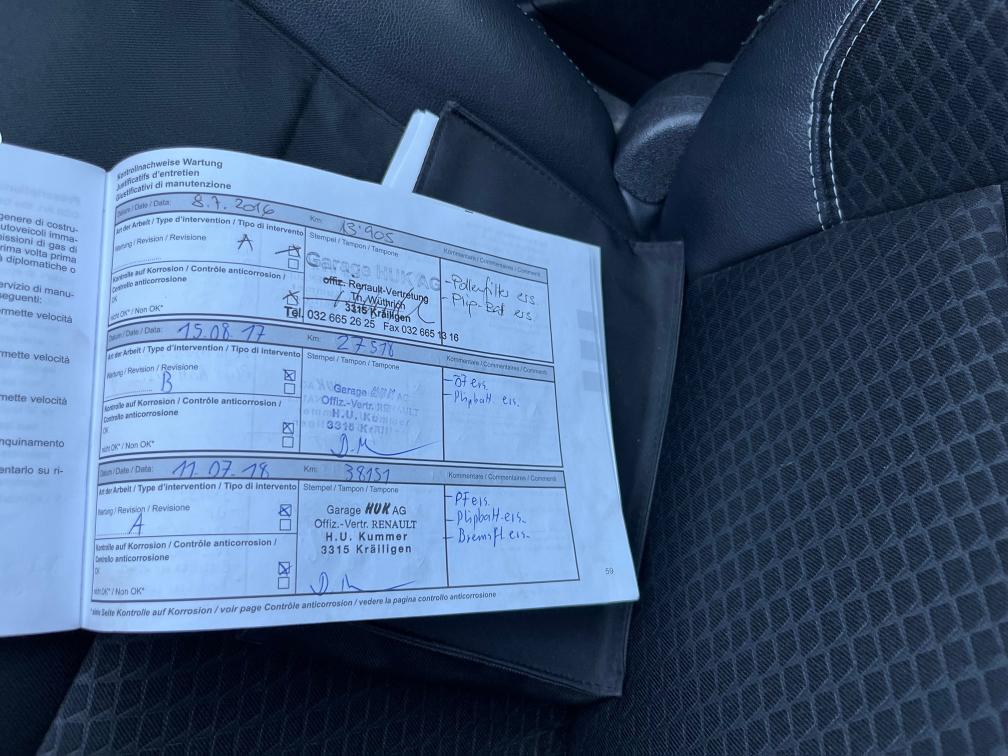 genere di costru-
utoveicoli imma-
issioni di gas di
rima volta prima
à diplomatiche o
ervizio di manu-
seguenti:
rmette velocità
mette velocità
mette velocità
nquinamento
entario su ri-
Kontrollnachweise Wartung
Justificatifs d'entretien
Giustificativi di manutenzione
Datum / Date / Data: 8.7.2016 Km: 13'905
Art der Arbeit / Type d'intervention / Tipo di intervento
Stempel / Tampon / Tampone
Kommentare / Commentaires / Commenti
Wartung / Revision / Revisione
A
Kontrolle auf Korrosion / Contrôle anticorrosion /
Controllo anticorrosione
OK
nicht OK* / Non OK*
Garage HUK AG
offiz. Renault-Vertretung
Th. Wüthrich
3315 Kräiligen
Tel. 032 665 26 25 Fax 032 665 13 16
- Pollenfilter ers.
- Plip-Bat ers
Datum / Date / Data: 15.08.17 Km: 27518
Art der Arbeit / Type d'intervention / Tipo di intervento
Stempel / Tampon / Tampone
Kommentare / Commentaires / Commenti
Wartung / Revision / Revisione
B
Kontrolle auf Korrosion / Contrôle anticorrosion /
Controllo anticorrosione
OK
nicht OK* / Non OK*
Garage HUK AG
Offiz.-Vertr. RENAULT
H.U. Kummer
3315 Kräiligen
- Plipbatt. ers.
Datum / Date / Data: 11.07.18 Km: 38151
Art der Arbeit / Type d'intervention / Tipo di intervento
Stempel / Tampon / Tampone
Kommentare / Commentaires / Commenti
Wartung / Revision / Revisione
A
Kontrolle auf Korrosion / Contrôle anticorrosion /
Controllo anticorrosione
OK
nicht OK* / Non OK*
Garage HUK AG
Offiz.-Vertr. RENAULT
H.U. Kummer
3315 Kräiligen
- PF ers.
- Plipbatt. ers.
- Bremsfl. ers.
* siehe Seite Kontrolle auf Korrosion / voir page Contrôle anticorrosion / vedere la pagina controllo anticorrosione
59